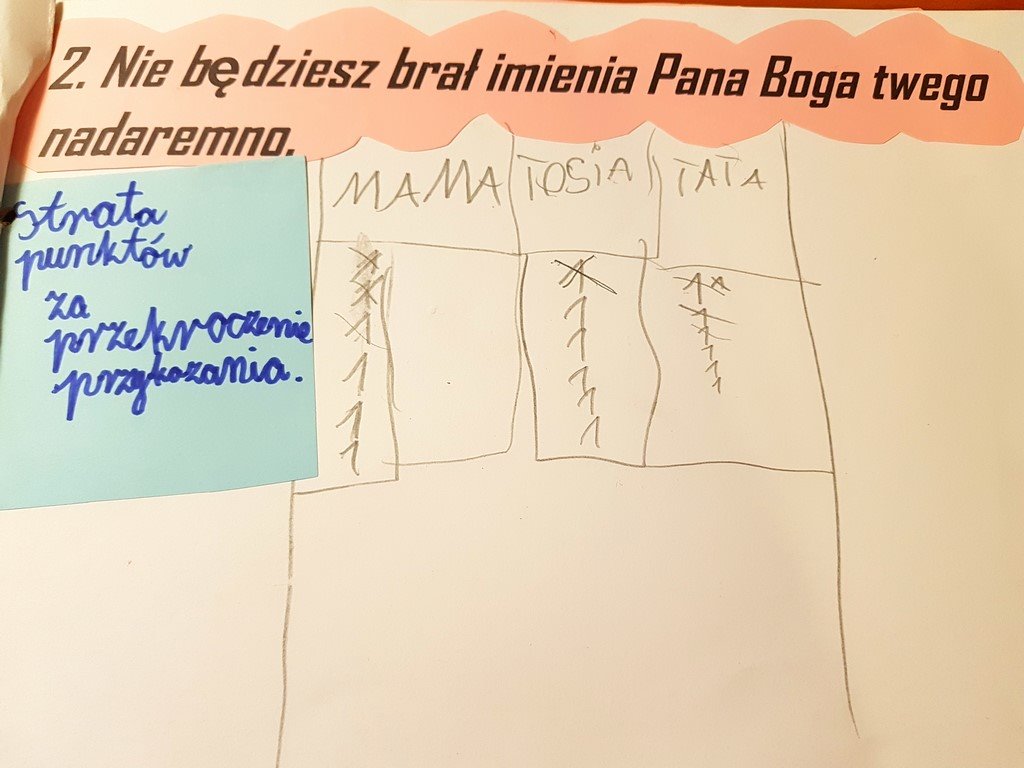 2. Nie będziesz brał imienia Pana Boga twego
nadaremno.
strata
punktów
za
przekroczenie
przykazania.
MAMA TOSIA TATA
1 1
1 1
1 1
1 1
1 1
1 1